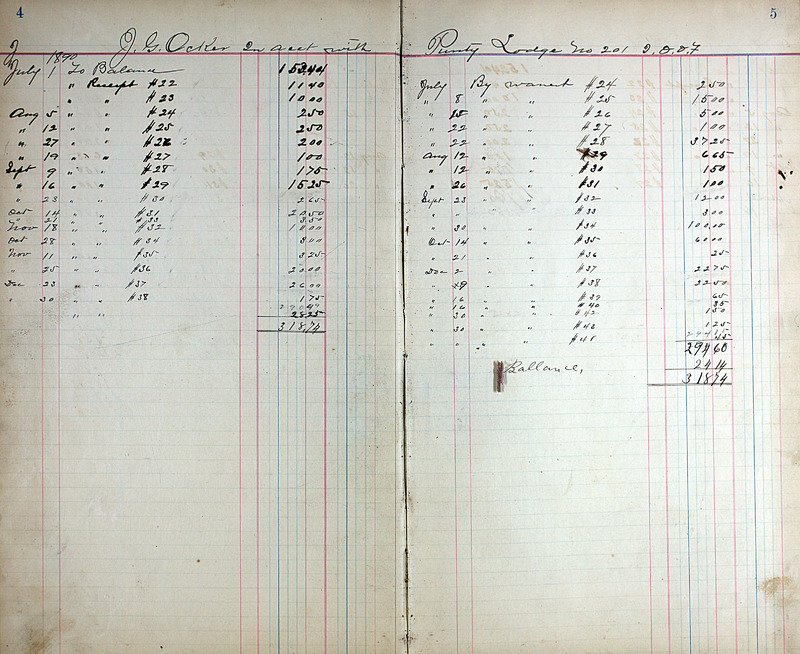 4
J. G. Ocker In acct with
1890
July 1 To Balance 15244
" Receipt #22 1140
" " #23 1000
Aug 5 " " #24 250
" 12 " " #25 250
" 27 " " #26 200
" 19 " " #27 100
Sept 9 " " #28 175
" 16 " " #29 1525
" 23 " " #30 265
Oct 14 " " #31 2050
" 21 " " #33 350
Nov 18 " " #32 1800
Oct 28 " " #34 800
Nov 11 " " #35 325
" 25 " " #36 2000
Dec 23 " " #37 2600
" 30 " " #38 175
" " 2825
31874
5
Purity Lodge No 201 I.O.O.F
July By warrant #24 250
" 8 " " #25 1500
" 15 " " #26 500
" 22 " " #27 100
" 22 " " #28 3725
Aug 12 " " #29 665
" 12 " " #30 150
" 26 " " #31 100
Sept 23 " " #32 1200
" " " #33 300
" 30 " " #34 10000
Oct 14 " " #35 6000
" 21 " " #36 25
Dec 2 " " #37 2275
" " " #38 3250
" 16 " " #39 65
" 16 " " #40 35
" 30 " " #42 150
" 30 " " #43 125
" " " 45
29460
Ballance, 2414
31874